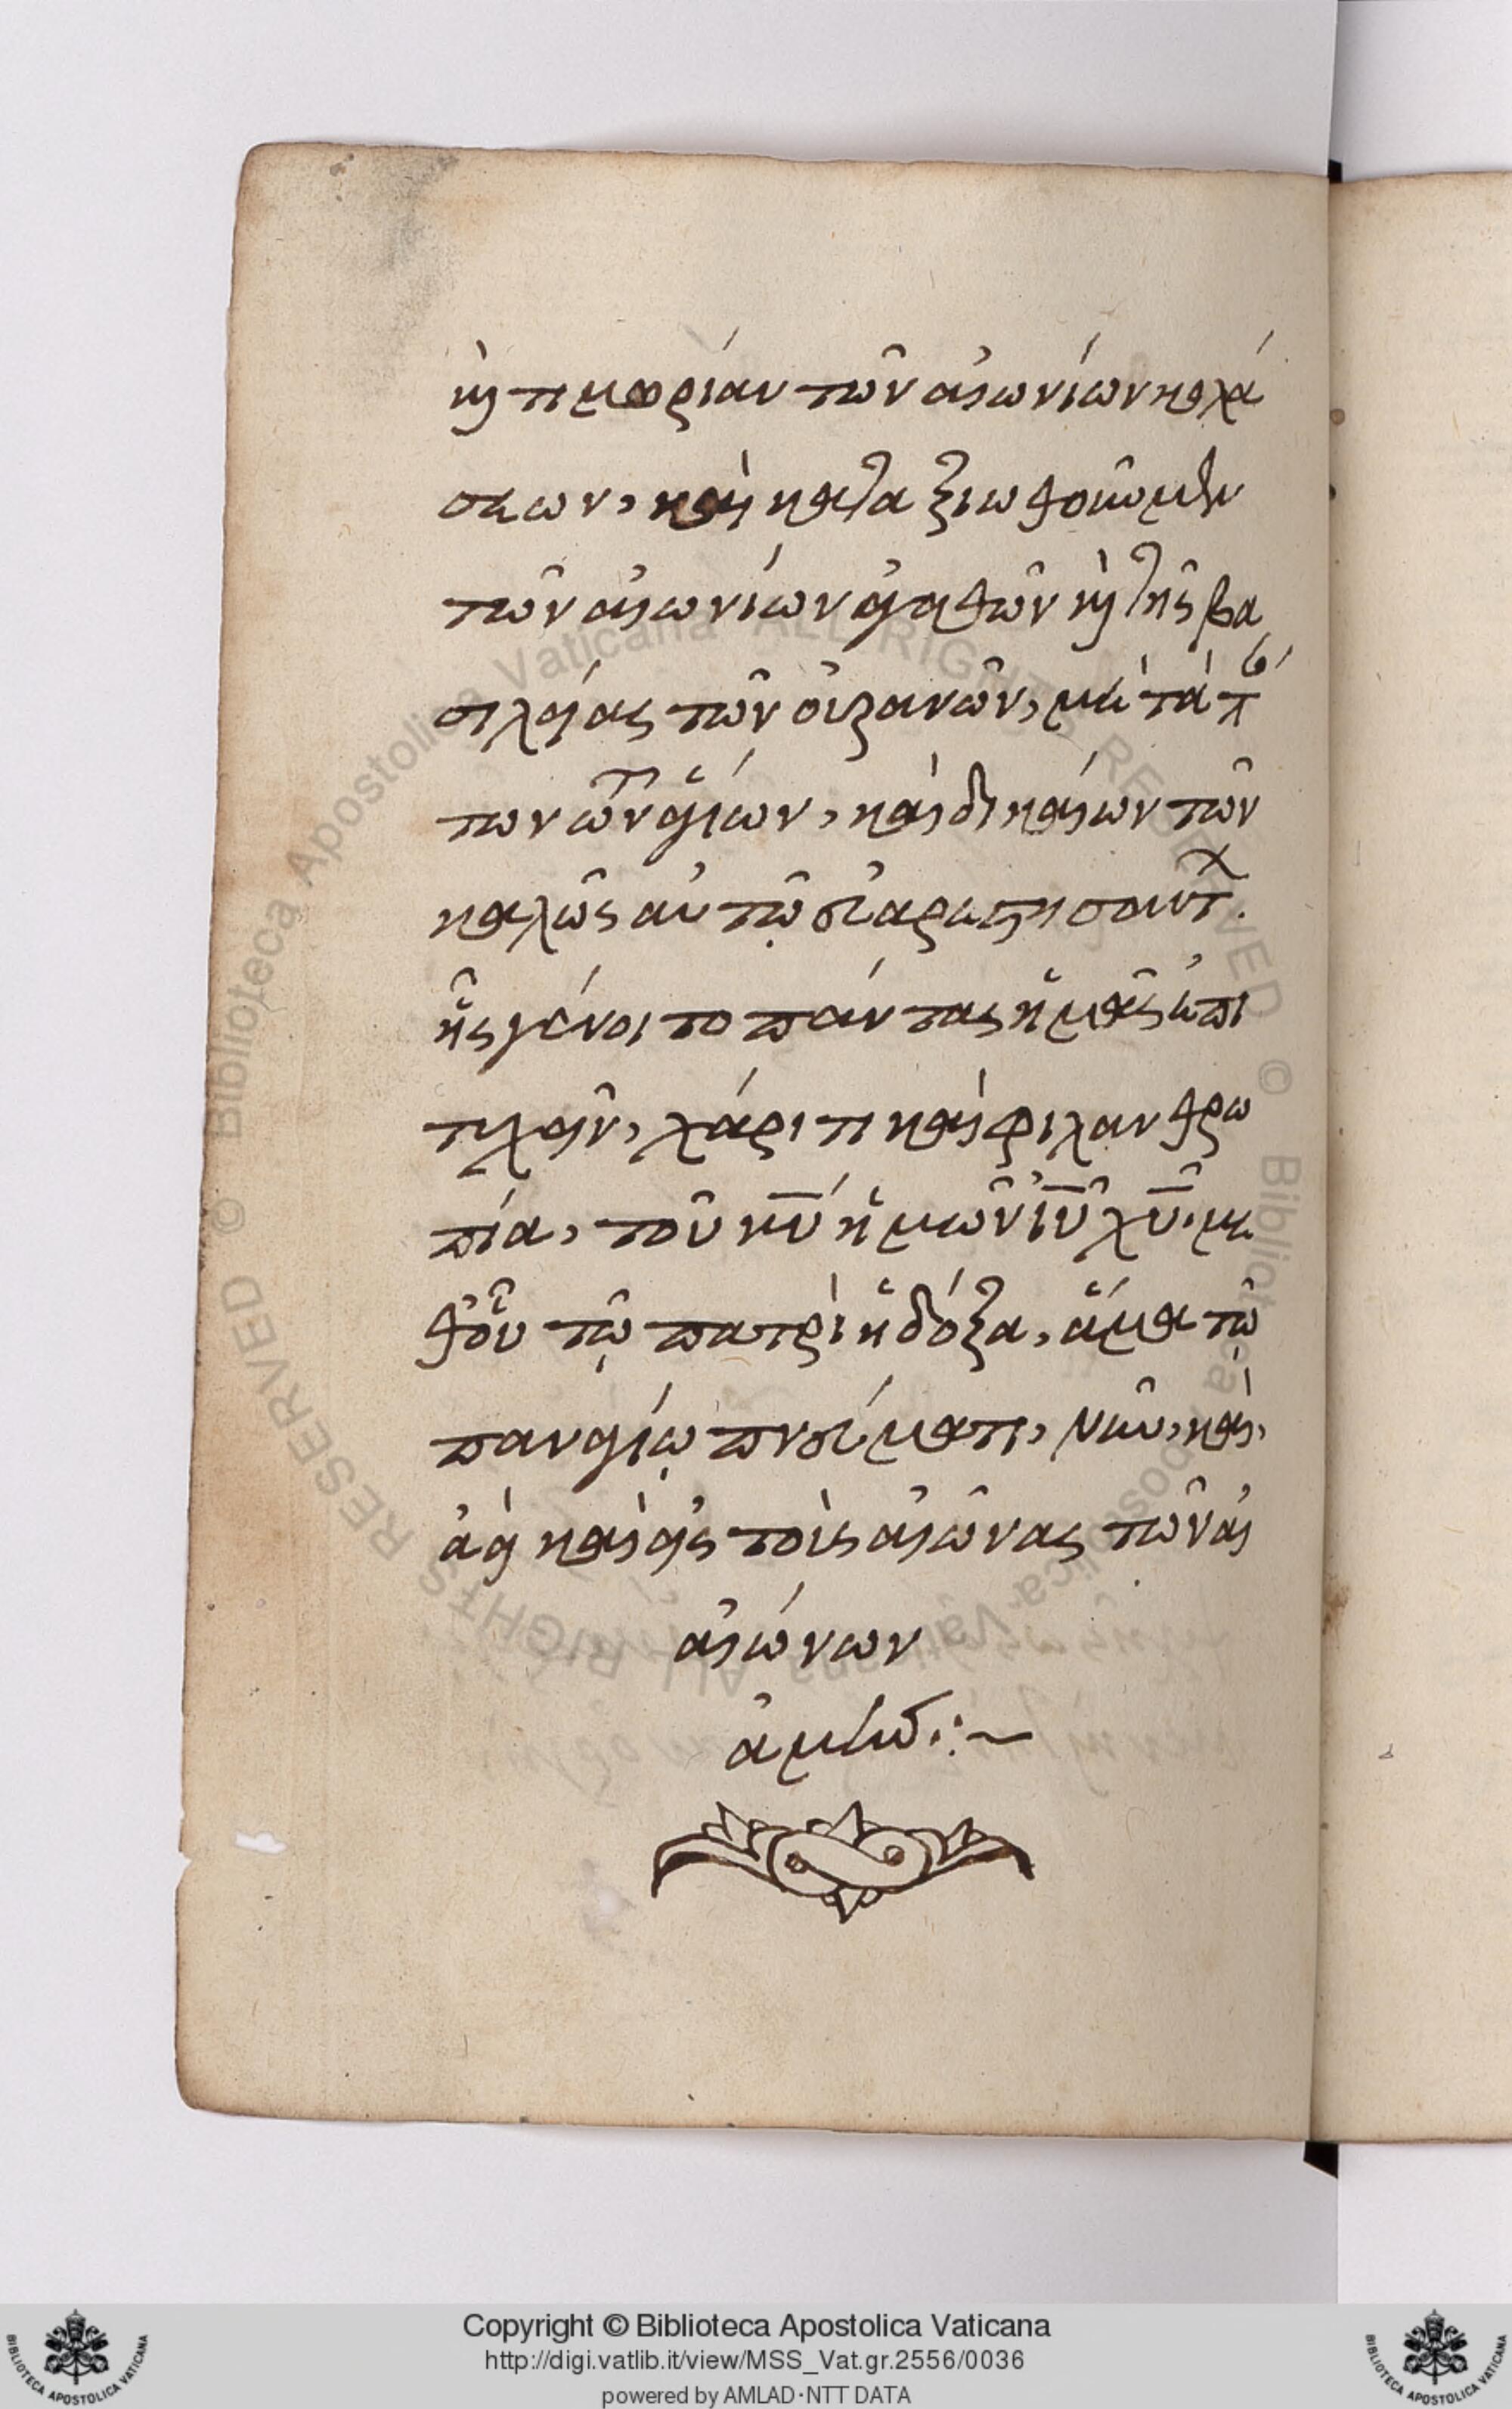 κὶ τιμωρίαν τῶν αἰωνίων κολά
σεων, καὶ καταξιωθοῦμεν
τῶν αἰωνίων ἀγαθῶν κὶ τῆς βα
σιλείας τῶν οὐρανῶν, μετὰ πάν
των τῶν ἁγίων, καὶ δικαίων τῶν
καλῶς αὐτῷ εὐαρεστησάντ.
ἧς γένοιτο πάντας ἡμᾶς ἐπι
τυχεῖν, χάριτι καὶ φιλανθρω
πία, τοῦ κυ ἡμῶν ιυ χυ. με
θ' οὗ τῷ πατρὶ ἡ δόξα, ἅμα τῷ
παναγίῳ πνεύματι, νῦν, καὶ,
ἀεὶ καὶ εἰς τοὺς αἰῶνας τῶν αἰ
αἰώνων
ἀμήν:~
Copyright © Biblioteca Apostolica Vaticana
http://digi.vatlib.it/view/MSS_Vat.gr.2556/0036
powered by AMLAD·NTT DATA